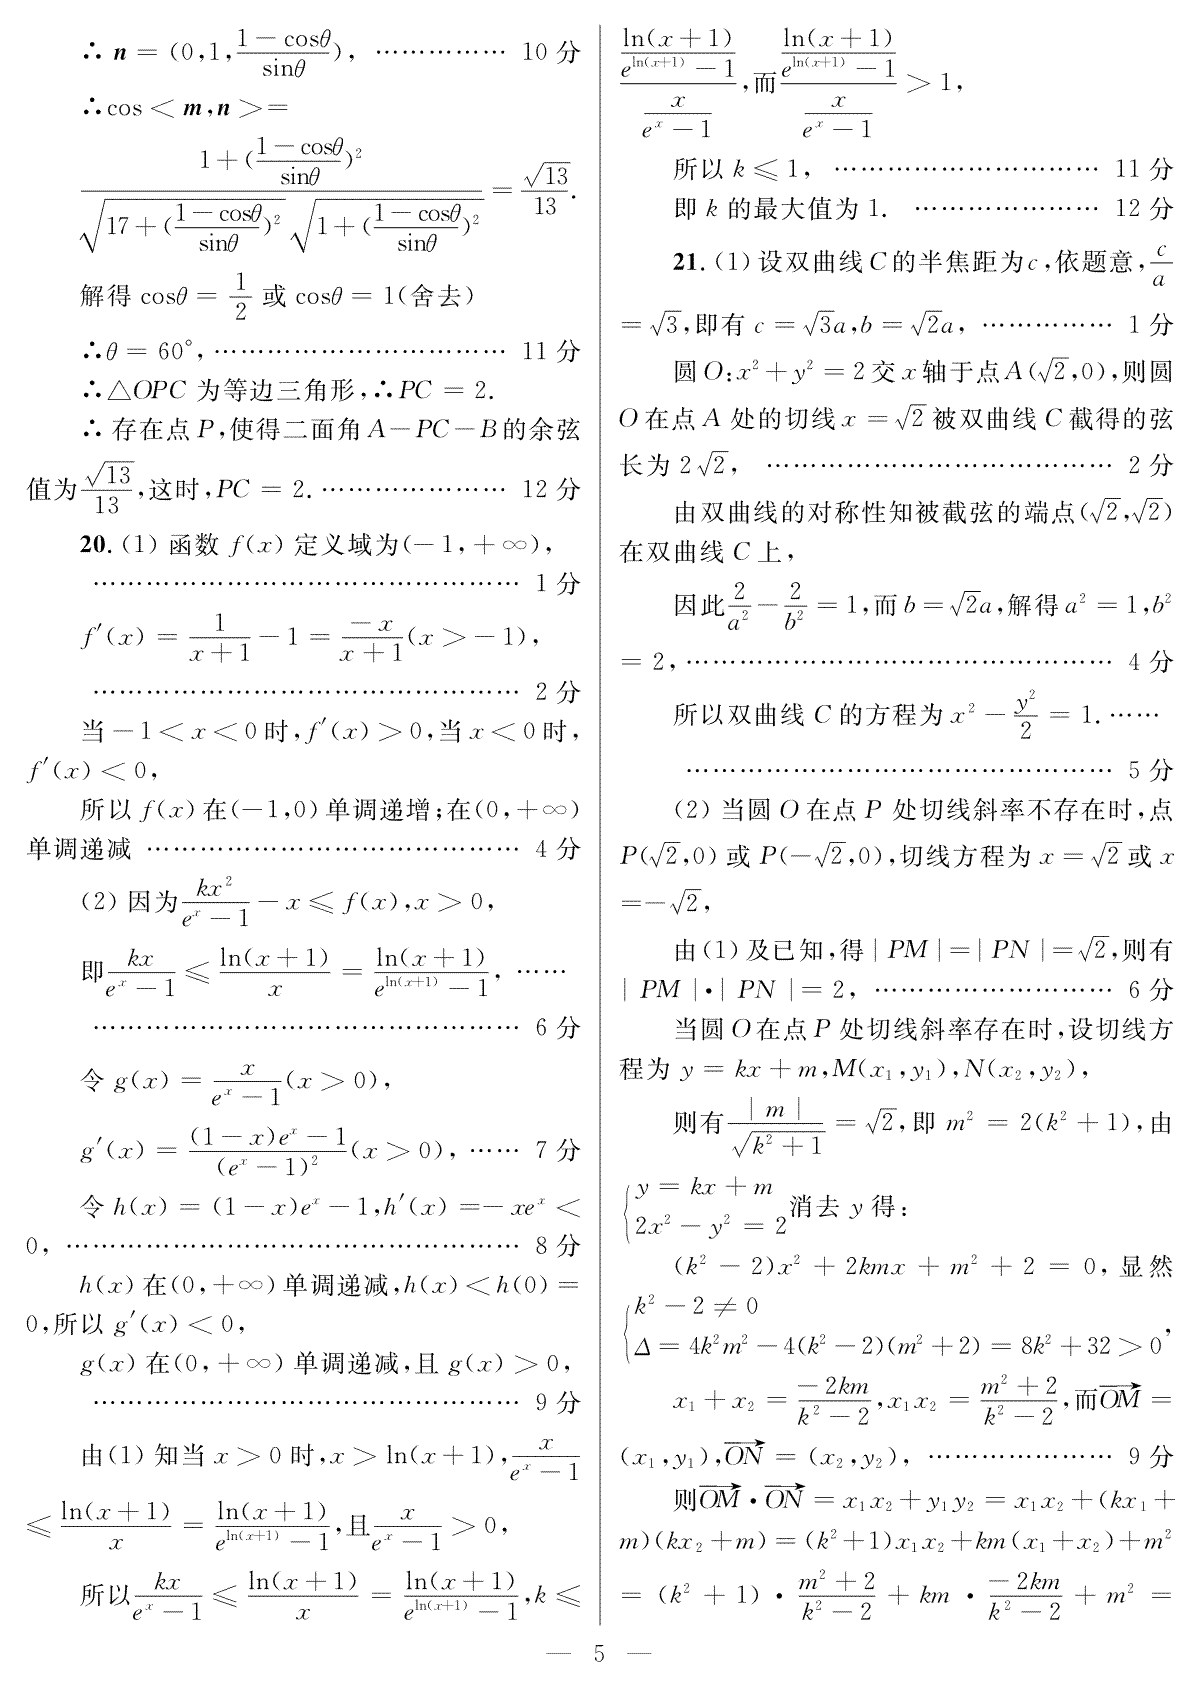 ∴ n = (0,1,(1－cosθ)/sinθ), …………… 10 分
∴cos < m,n >=
(1+((1－cosθ)/sinθ)²)/(√(17+((1－cosθ)/sinθ)²) √(1+((1－cosθ)/sinθ)²)) = √13/13.
解得 cosθ = 1/2 或 cosθ = 1(舍去)
∴θ = 60°, …………………………… 11 分
∴△OPC 为等边三角形,∴PC = 2.
∴ 存在点 P,使得二面角 A－PC－B 的余弦
值为 √13/13,这时,PC = 2. ………………… 12 分
20. (1) 函数 f(x) 定义域为(－1,＋∞),
………………………………………… 1 分
f′(x) = 1/(x＋1) － 1 = －x/(x＋1) (x >－1),
………………………………………… 2 分
当－1 < x < 0 时,f′(x) > 0,当 x < 0 时,
f′(x) < 0,
所以 f(x) 在(－1,0) 单调递增;在(0,＋∞)
单调递减 …………………………………… 4 分
(2) 因为 kx²/(eˣ－1) － x ⩽ f(x),x > 0,
即 kx/(eˣ－1) ⩽ ln(x＋1)/x = ln(x＋1)/(e^(ln(x+1))－1), ……
………………………………………… 6 分
令 g(x) = x/(eˣ－1) (x > 0),
g′(x) = ((1－x)eˣ－1)/(eˣ－1)² (x > 0), …… 7 分
令 h(x) = (1－x)eˣ－1,h′(x) =－xeˣ <
0, …………………………………………… 8 分
h(x) 在(0,＋∞) 单调递减,h(x) < h(0) =
0,所以 g′(x) < 0,
g(x) 在(0,＋∞) 单调递减,且 g(x) > 0,
………………………………………… 9 分
由(1) 知当 x > 0 时,x > ln(x＋1), x/(eˣ－1)
⩽ ln(x＋1)/x = ln(x＋1)/(e^(ln(x+1))－1),且 x/(eˣ－1) > 0,
所以 kx/(eˣ－1) ⩽ ln(x＋1)/x = ln(x＋1)/(e^(ln(x+1))－1),k ⩽
(ln(x＋1)/(e^(ln(x+1))－1))/(x/(eˣ－1)),而 (ln(x＋1)/(e^(ln(x+1))－1))/(x/(eˣ－1)) > 1,
所以 k ⩽ 1, ………………………… 11 分
即 k 的最大值为 1. ………………… 12 分
21. (1) 设双曲线 C 的半焦距为 c,依题意, c/a
= √3,即有 c = √3a,b = √2a, …………… 1 分
圆 O:x²＋y² = 2 交 x 轴于点 A(√2,0),则圆
O 在点 A 处的切线 x = √2 被双曲线 C 截得的弦
长为 2√2, ………………………………… 2 分
由双曲线的对称性知被截弦的端点(√2,√2)
在双曲线 C 上,
因此 2/a² － 2/b² = 1,而 b = √2a,解得 a² = 1,b²
= 2, ………………………………………… 4 分
所以双曲线 C 的方程为 x² － y²/2 = 1. ……
………………………………………… 5 分
(2) 当圆 O 在点 P 处切线斜率不存在时,点
P(√2,0) 或 P(－√2,0),切线方程为 x = √2 或 x
=－√2,
由(1) 及已知,得 | PM |=| PN |= √2,则有
| PM |·| PN |= 2, ……………………… 6 分
当圆 O 在点 P 处切线斜率存在时,设切线方
程为 y = kx＋m,M(x₁,y₁),N(x₂,y₂),
则有 | m |/√(k²＋1) = √2,即 m² = 2(k²＋1),由
{y = kx＋m
2x²－y² = 2 消去 y 得:
(k²－2)x²＋2kmx＋m²＋2 = 0, 显然
{k²－2 ≠ 0
Δ = 4k²m²－4(k²－2)(m²＋2) = 8k²＋32 > 0 ,
x₁＋x₂ = －2km/(k²－2),x₁x₂ = (m²＋2)/(k²－2),而 O⃗M⃗ =
(x₁,y₁),O⃗N⃗ = (x₂,y₂), ………………… 9 分
则 O⃗M⃗ · O⃗N⃗ = x₁x₂＋y₁y₂ = x₁x₂＋(kx₁＋
m)(kx₂＋m) = (k²＋1)x₁x₂＋km(x₁＋x₂)＋m²
= (k²＋1)·(m²＋2)/(k²－2) ＋ km · －2km/(k²－2) ＋ m² =
— 5 —